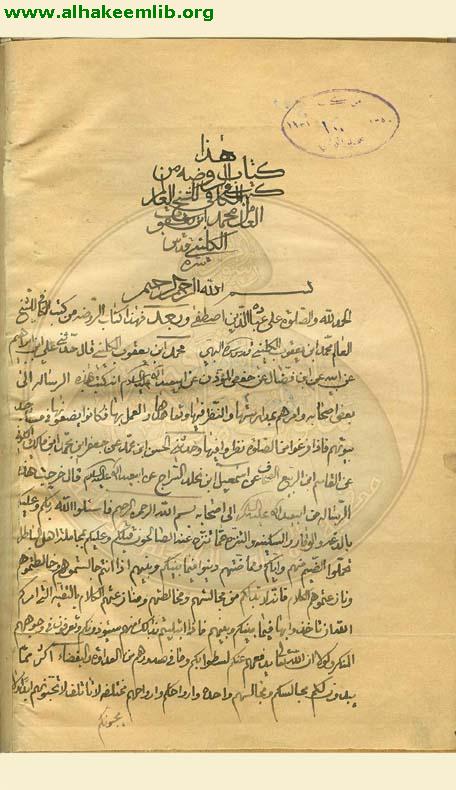 www.alhakeemlib.org
هذا
كتاب الروضه من
كتب الكافي للشيخ العالم
العامل محمد ابن يعقوب
الكليني قدس
سره
بسم الله الرحمن الرحيم
الحمد لله والصلوة على عباده الذين اصطفى وبعد فهذا كتاب الروضه من كتب الكافي للشيخ
العالم محمد ابن يعقوب الكليني قدس سره محمد ابن يعقوب الكليني قال حدثني علي ابن ابراهيم
عن ابيه عن ابن فضال عن حفص المؤذن عن ابيعبد الله عليه السلام انه كتب هذه الرساله الى
بعض اصحابه وامرهم بمدارستها والنظر فيها وتعاهدها والعمل بها فكانوا يضعونها في مساجد
بيوتهم فاذا فرغوا من الصلوة نظروا فيها وحدثني الحسن ابن محمد عن جعفر ابن محمد ابن مالك
عن القاسم ابن الربيع الصحاف عن اسمعيل ابن مخلد السراج عن ابيعبد الله عليه السلام قال خرجت هذه
الرساله من ابيعبد الله عليه السلام الى اصحابه بسم الله الرحمن الرحيم اما بعد فاسئلوا الله ربكم وعليكم
بالدعه والوقار والسكينه والتنزه عما تنزه عنه الصالحون قبلكم وعليكم بمجاملة اهل الباطل
تحملوا الضيم منهم واياكم ومماظتهم دينوا فيما بينكم وبينهم اذا انتم جالستموهم وخالطتموهم
ونازعتموهم الكلام فانه لا بد لكم من مجالستهم ومخالطتهم ومنازعتهم الكلام بالتقيه التي امركم
الله ان تاخذوا بها فيما بينكم وبينهم فاذا ابتليتم بذلك منهم سيؤذونكم وتعرفون في وجوههم
المنكر ولولا ان الله تعالى يدفعهم عنكم لسطوا بكم وما في صدورهم من العداوة والبغضاء اكثر مما
يبدون لكم مجالسكم ومجالسهم واحدة وارواحكم وارواحهم مختلفه لا تاتلف لا تحبونهم ابدا ولا
يحبونكم